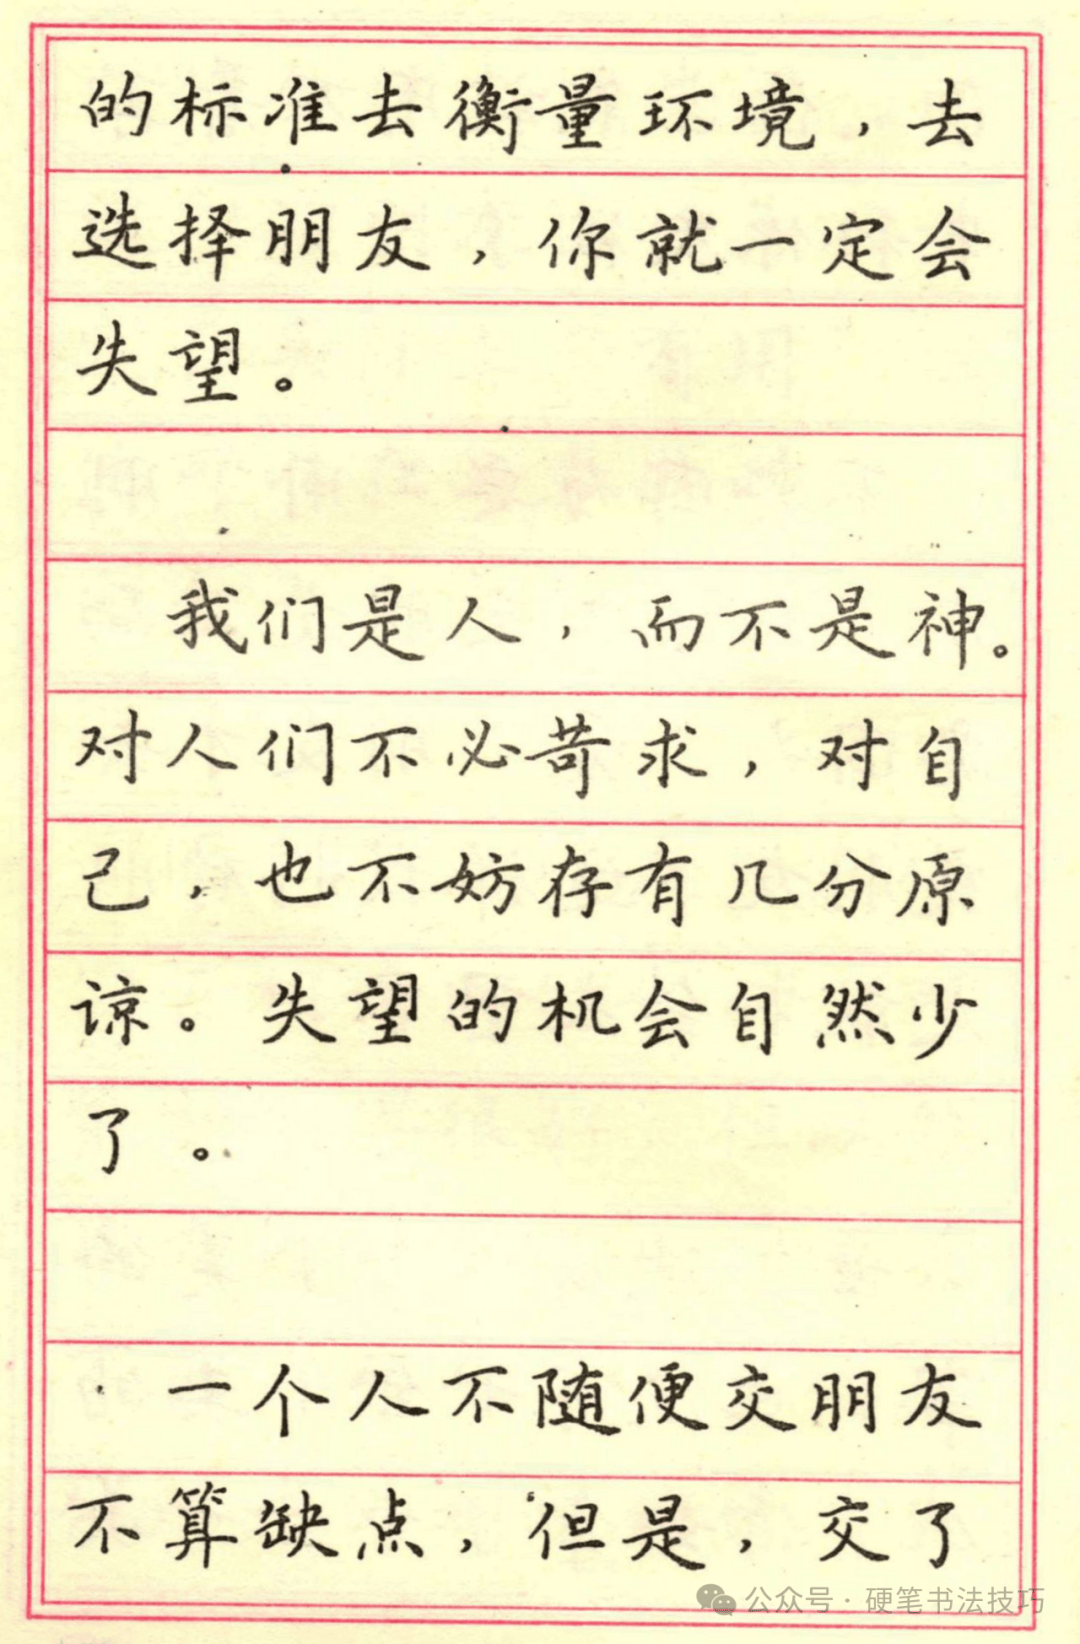 的标准去衡量环境，去
选择朋友，你就一定会
失望。
我们是人，而不是神。
对人们不必苛求，对自
己，也不妨存有几分原
谅。失望的机会自然少
了。
一个人不随便交朋友
不算缺点，但是，交了
公众号·硬笔书法技巧